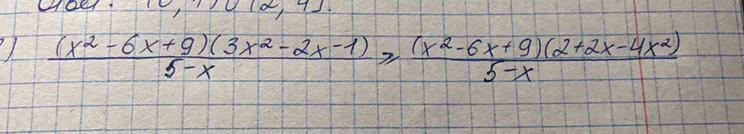 ) (x² - 6x + 9)(3x² - 2x - 1) / 5 - x ≥ (x² - 6x + 9)(2 + 2x - 4x²) / 5 - x